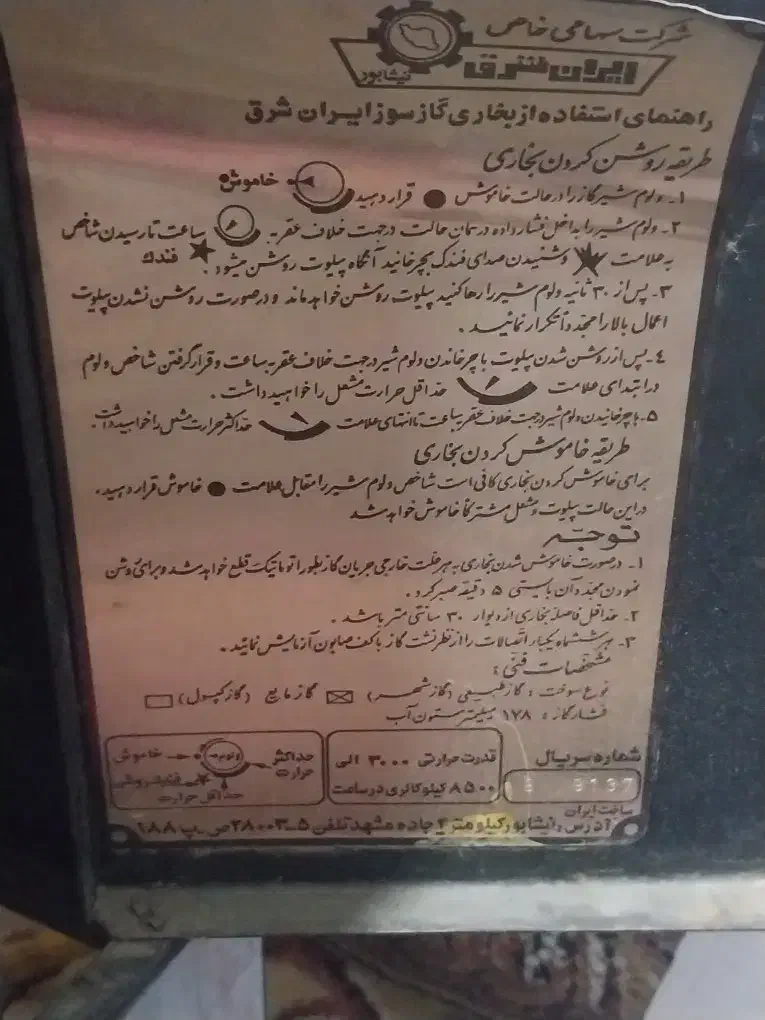 شرکت سهامی خاص
ایران شرق
نیشابور
راهنمای استفاده از بخاری گازسوز ایران شرق
طریقه روشن کردن بخاری
۱ـ ولوم شیر گاز را در حالت خاموش ● قرار دهید خاموش●
۲ـ ولوم شیر را به داخل فشار داده در همان حالت در جهت خلاف عقربه ساعت تا رسیدن شاخص
به علامت ★ و شنیدن صدای فندک بچرخانید آنگاه پیلوت روشن میشود. ★ فندک
۳ـ پس از ۳۰ ثانیه ولوم شیر را رها کنید پیلوت روشن خواهد ماند و در صورت روشن نشدن پیلوت
اعمال بالا را مجدداً تکرار نمائید.
٤ـ پس از روشن شدن پیلوت با چرخاندن ولوم شیر در جهت خلاف عقربه ساعت و قرار گرفتن شاخص ولوم
در ابتدای علامت حداقل حرارت مشعل را خواهید داشت.
۵ـ با چرخانیدن ولوم شیر در جهت خلاف عقربه ساعت تا انتهای علامت حداکثر حرارت مشعل را خواهید داشت.
طریقه خاموش کردن بخاری
برای خاموش کردن بخاری کافی است شاخص ولوم شیر را مقابل علامت ● خاموش قرار دهید.
در این حالت پیلوت و مشعل مشترکاً خاموش خواهد شد
توجه
۱ـ در صورت خاموش شدن بخاری به هر علت خارجی جریان گاز بطور اتوماتیک قطع خواهد شد و برای روشن
نمودن مجدد آن بایستی ۵ دقیقه صبر کرد.
۲ـ حداقل فاصله بخاری از دیوار ۳۰ سانتی متر باشد.
۳ـ هر ششماه یکبار اتصالات را از نظر نشت گاز با کف صابون آزمایش نمائید.
مشخصات فنی:
نوع سوخت: گاز طبیعی (گاز شهر) ☒ گاز مایع (گاز کپسول) ☐
فشار گاز: ۱۷۸ میلیمتر ستون آب
شماره سریال
9137
قدرت حرارتی ۳۰۰۰ الی
۸۵۰۰ کیلو کالری در ساعت
حداکثر حرارت
ولوم
خاموش
حداقل حرارت
ساخت ایران
آدرس: نیشابور کیلومتر ۲ جاده مشهد تلفن ۵ـ۲۸۰۰۳ ص ـ پ ۱۸۸